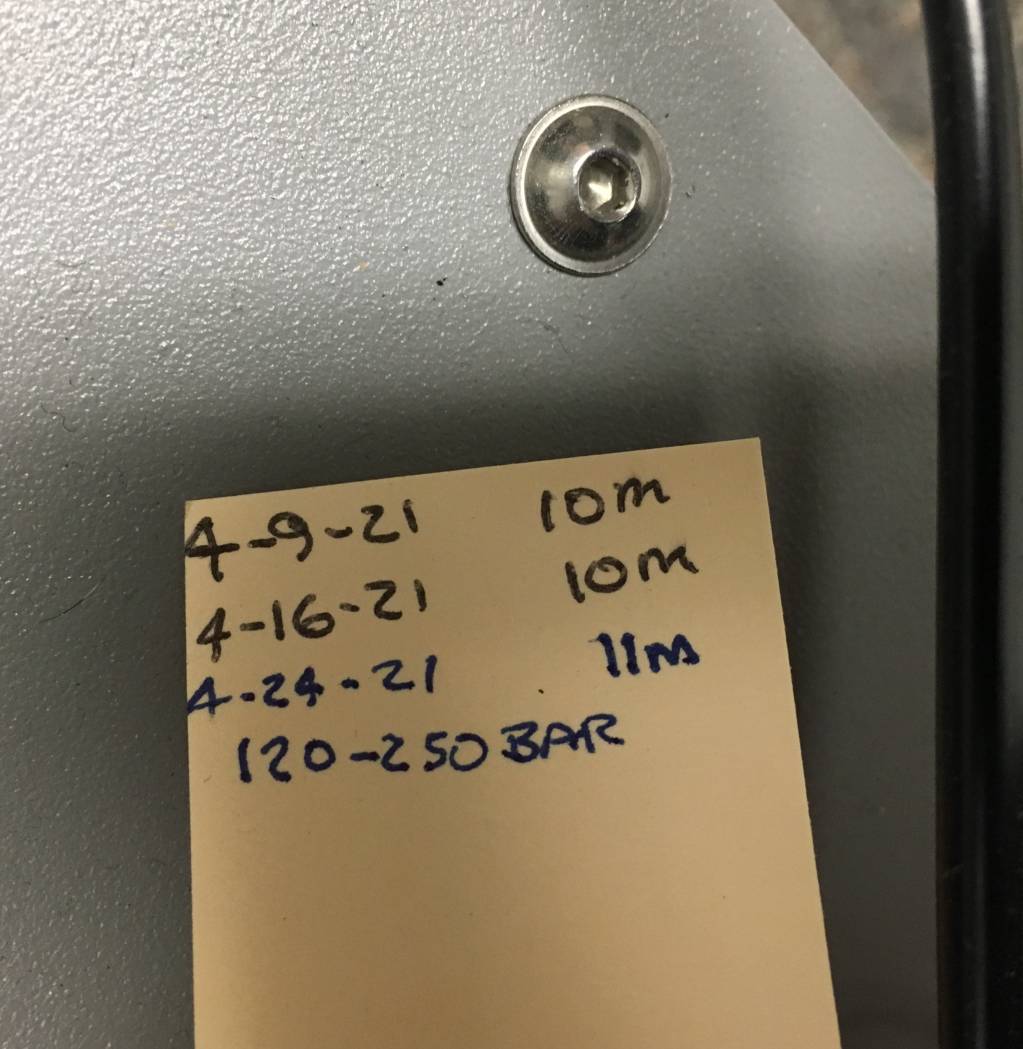 4-9-21 10m
4-16-21 10m
4-24-21 11m
120-250 BAR